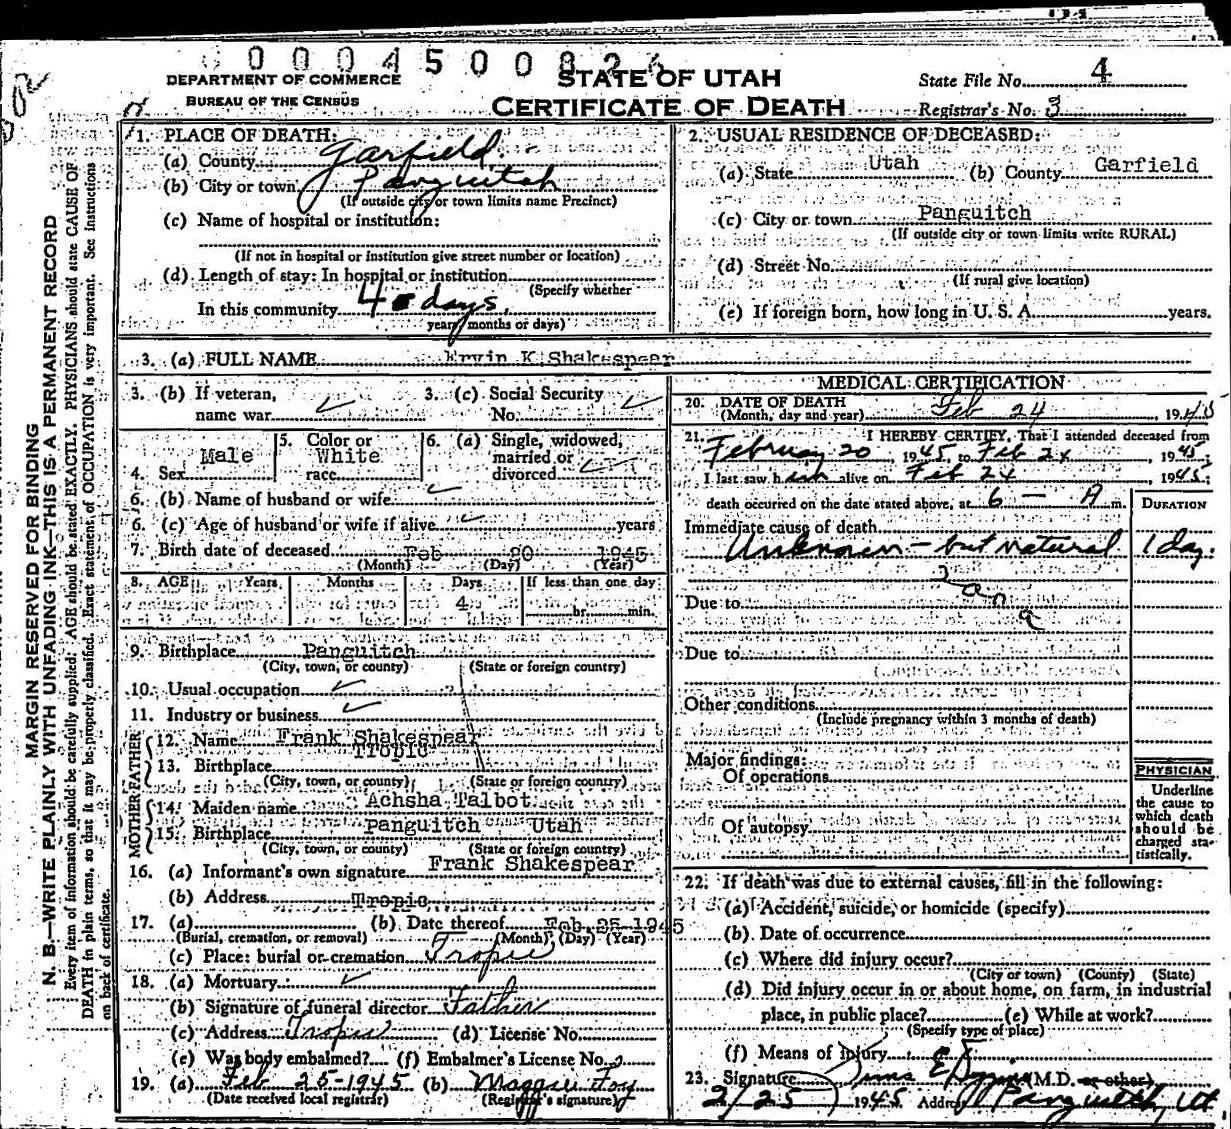 0004500826
DEPARTMENT OF COMMERCE
BUREAU OF THE CENSUS
STATE OF UTAH
CERTIFICATE OF DEATH
State File No. 4
Registrar's No. 3
MARGIN RESERVED FOR BINDING
N. B.—WRITE PLAINLY WITH UNFADING INK—THIS IS A PERMANENT RECORD
Every item of information should be carefully supplied. AGE should be stated EXACTLY. PHYSICIANS should state CAUSE OF
DEATH in plain terms, so that it may be properly classified. Exact statement of OCCUPATION is very important. See instructions
on back of certificate.
1. PLACE OF DEATH:
(a) County Garfield
(b) City or town Panguitch
(If outside city or town limits name Precinct)
(c) Name of hospital or institution:
(If not in hospital or institution give street number or location)
(d) Length of stay: In hospital or institution
(Specify whether
In this community 4 days.
years, months or days)
2. USUAL RESIDENCE OF DECEASED:
(a) State Utah (b) County Garfield
(c) City or town Panguitch
(If outside city or town limits write RURAL)
(d) Street No.
(If rural give location)
(e) If foreign born, how long in U. S. A. years.
3. (a) FULL NAME Ervin K Shakespear
3. (b) If veteran, name war
3. (c) Social Security No.
4. Sex Male
5. Color or race White
6. (a) Single, widowed, married or divorced
6. (b) Name of husband or wife
6. (c) Age of husband or wife if alive years
7. Birth date of deceased Feb 20 1945
(Month) (Day) (Year)
8. AGE Years Months Days If less than one day
4 hr. min.
9. Birthplace Panguitch
(City, town, or county) (State or foreign country)
10. Usual occupation
11. Industry or business
FATHER
12. Name Frank Shakespear
13. Birthplace Tropic
(City, town, or county) (State or foreign country)
MOTHER
14. Maiden name Achsha Talbot
15. Birthplace Panguitch Utah
(City, town, or county) (State or foreign country)
16. (a) Informant's own signature Frank Shakespear
(b) Address Tropic
17. (a) (b) Date thereof Feb. 25-1945
(Burial, cremation, or removal) (Month) (Day) (Year)
(c) Place: burial or cremation Tropic
18. (a) Mortuary
(b) Signature of funeral director Father
(c) Address Tropic (d) License No.
(e) Was body embalmed? (f) Embalmer's License No.
19. (a) Feb 25-1945 (b)
(Date received local registrar) (Registrar's signature)
MEDICAL CERTIFICATION
20. DATE OF DEATH
(Month, day and year) Feb 24, 1945
21. I HEREBY CERTIFY, That I attended deceased from
February 20 1945, to Feb 24 1945;
I last saw him alive on Feb 24 1945;
death occurred on the date stated above, at 6 — A m. DURATION
Immediate cause of death
Unknown — but natural 1 day.
Due to
Due to
Other conditions
(Include pregnancy within 3 months of death)
Major findings:
Of operations
Of autopsy
PHYSICIAN
Underline
the cause to
which death
should be
charged sta-
tistically.
22. If death was due to external causes, fill in the following:
(a) Accident, suicide, or homicide (specify)
(b) Date of occurrence
(c) Where did injury occur?
(City or town) (County) (State)
(d) Did injury occur in or about home, on farm, in industrial
place, in public place? (e) While at work?
(Specify type of place)
(f) Means of injury
23. Signature (M.D. or other)
2/25 1945 Address Panguitch, Ut